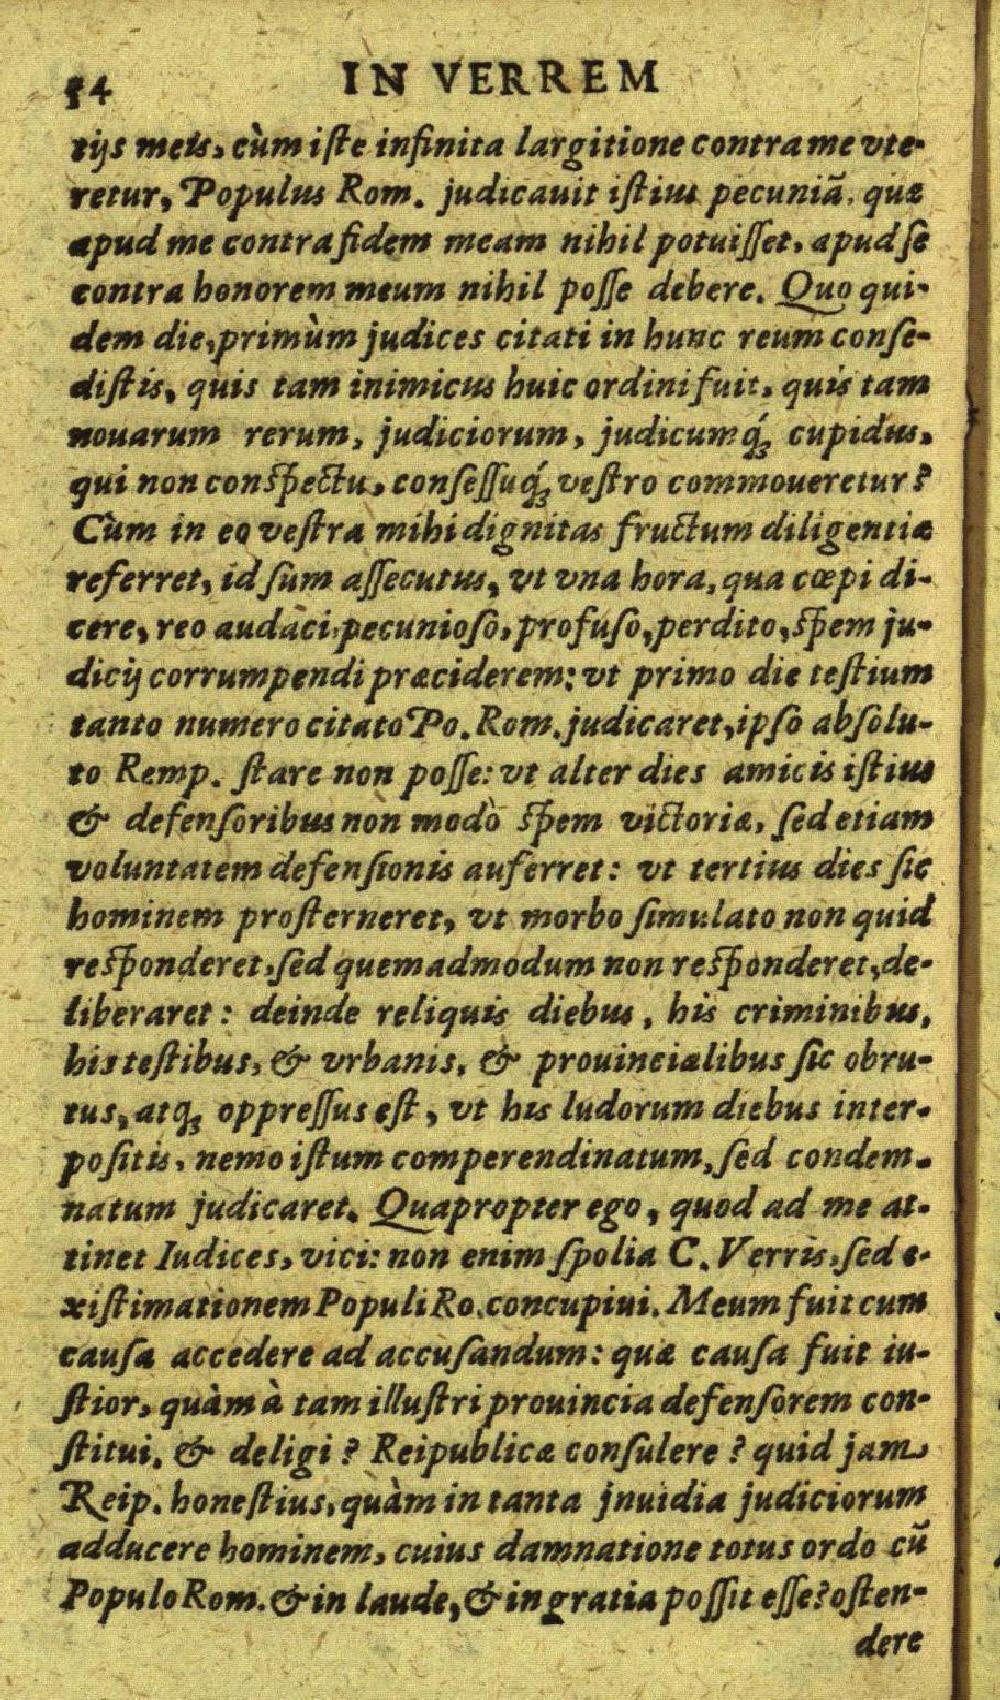 54 IN VERREM
tijs meis, cùm iſte infinita largitione contra me vte-
retur, Populus Rom. judicauit iſtius pecuniã, quæ
apud me contra fidem meam nihil potuiſſet, apud ſe
contra honorem meum nihil poſſe debere. Quo qui-
dem die, primùm judices citati in hunc reum conſe-
diſtis, quis tam inimicus huic ordini fuit, quis tam
nouarum rerum, judiciorum, judicumq́; cupidus,
qui non conſpectu, conſeſſuq́; veſtro commoueretur?
Cùm in eo veſtra mihi dignitas fructum diligentiæ
referret, id ſum aſſecutus, vt vna hora, qua cœpi di-
cere, reo audaci, pecunioſo, profuſo, perdito, ſpem ju-
dicij corrumpendi præciderem: vt primo die teſtium
tanto numero citato Po. Rom. judicaret, ipſo abſolu-
to Remp. ſtare non poſſe: vt alter dies amicis iſtius
& defenſoribus non modò ſpem victoriæ, ſed etiam
voluntatem defenſionis auferret: vt tertius dies ſic
hominem proſterneret, vt morbo ſimulato non quid
reſponderet, ſed quemadmodum non reſponderet, de-
liberaret: deinde reliquis diebus, his criminibus,
his teſtibus, & vrbanis, & prouincialibus ſic obru-
tus, atq; oppreſſus eſt, vt his ludorum diebus inter-
poſitis, nemo iſtum comperendinatum, ſed condem-
natum judicaret. Quapropter ego, quod ad me at-
tinet Iudices, vici: non enim ſpolia C. Verris, ſed e-
xiſtimationem Populi Ro. concupiui. Meum fuit cum
cauſa accedere ad accuſandum: quæ cauſa fuit iu-
ſtior, quàm à tam illuſtri prouincia defenſorem con-
ſtitui, & deligi? Reipublicæ conſulere? quid jam
Reip. honeſtius, quàm in tanta jnuidia judiciorum
adducere hominem, cuius damnatione totus ordo cũ
Populo Rom. & in laude, & in gratia poſſit eſſe? oſten-
dere